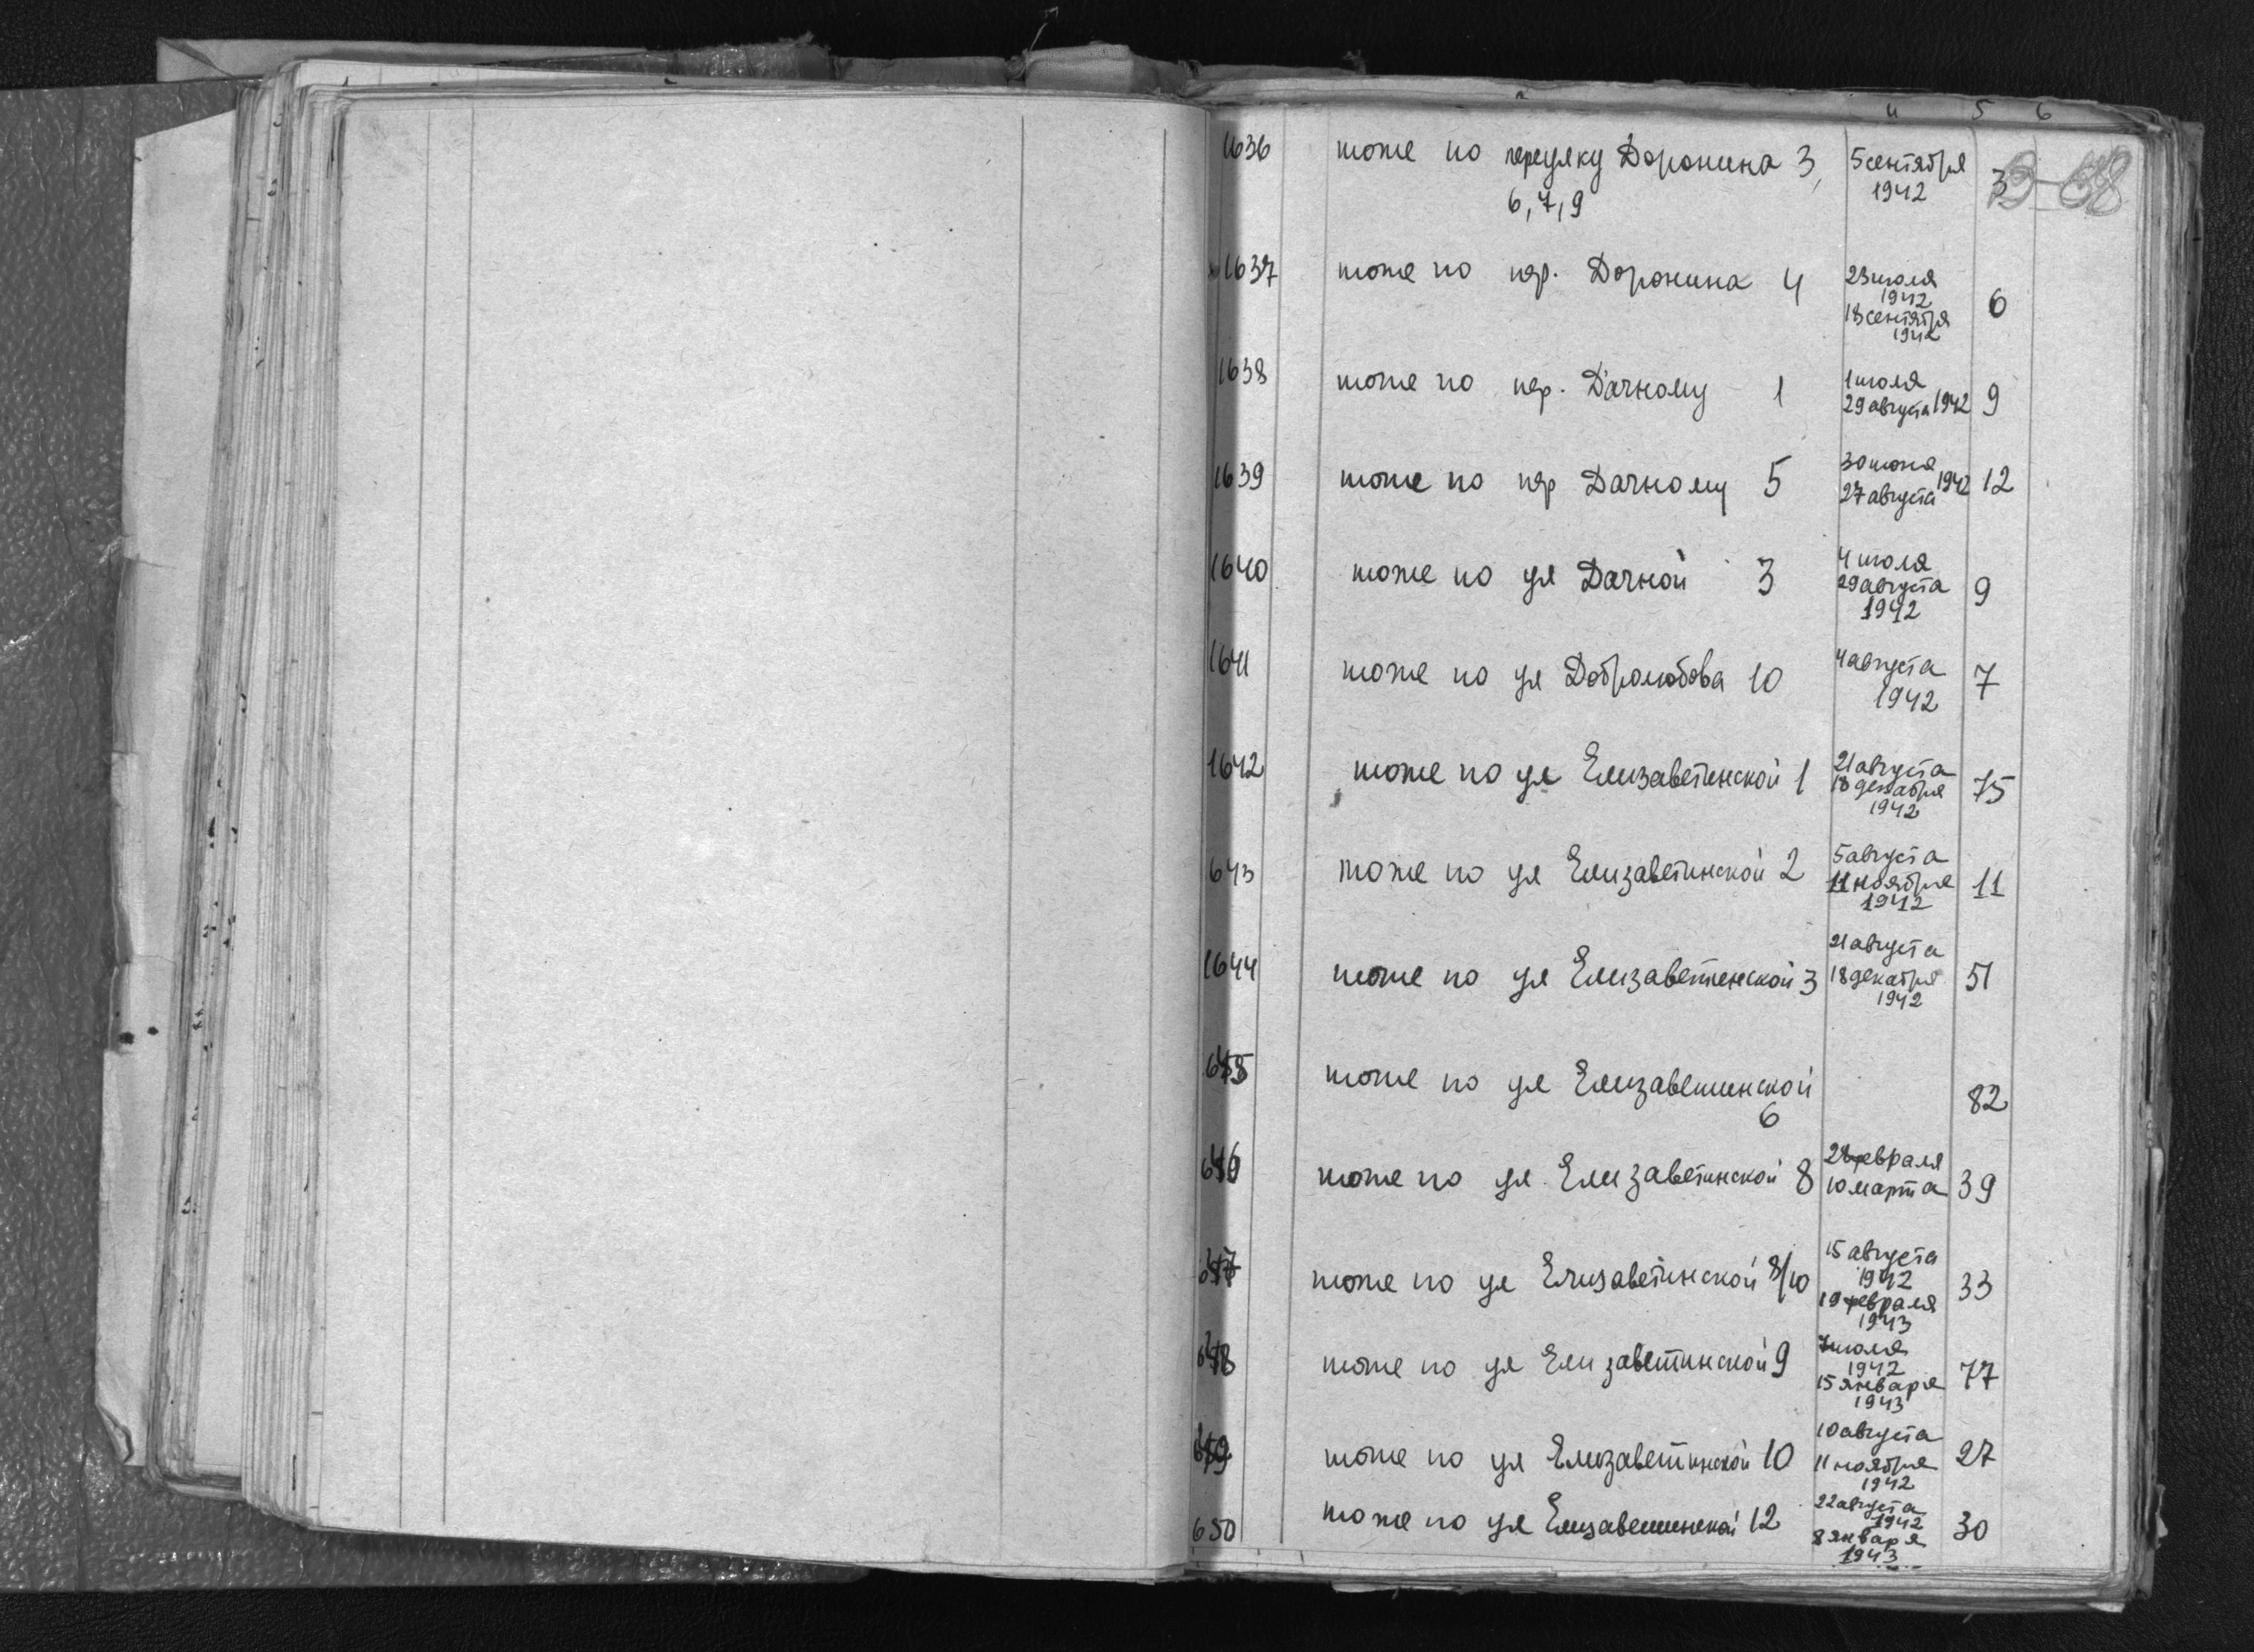 4 5 6
1636 тоже по переулку Доронина 3, 5 сентября
6, 7, 9 1942 3
1637 тоже по пер. Доронина 4 23 июля
1942
18 сентября 6
1942
1638 тоже по пер. Дачному 1 1 июля
29 августа 1942 9
1639 тоже по пер Дачному 5 30 июня
27 августа 1942 12
1640 тоже по ул Дачной 3 4 июля
29 августа 9
1942
1641 тоже по ул Добролюбова 10 4 августа
1942 7
1642 тоже по ул Елизаветинской 1 21 августа
18 декабря 75
1942
643 тоже по ул Елизаветинской 2 5 августа
11 ноября 11
1942
1644 тоже по ул Елизаветинской 3 21 августа
18 декабря 51
1942
645 тоже по ул Елизаветинской
6 82
646 тоже по ул. Елизаветинской 8 28 февраля
10 марта 39
647 тоже по ул Елизаветинской 8/10 15 августа
1942 33
19 февраля
1943
648 тоже по ул Елизаветинской 9 7 июля
1942 77
15 января
1943
649 тоже по ул Елизаветинской 10 10 августа
11 ноября 27
1942
650 тоже по ул Елизаветинской 12 22 августа
1942 30
8 января
1943